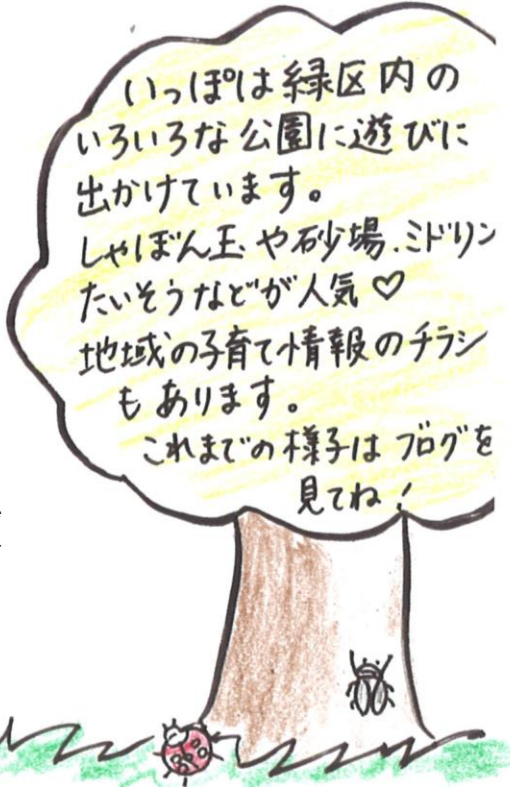 いっぽは緑区内の
いろいろな公園に遊びに
出かけています。
しゃぼん玉、や砂場、ミドリン
たいそうなどが人気♡
地域の子育て情報のチラシ
もあります。
これまでの様子はブログを
見てね!